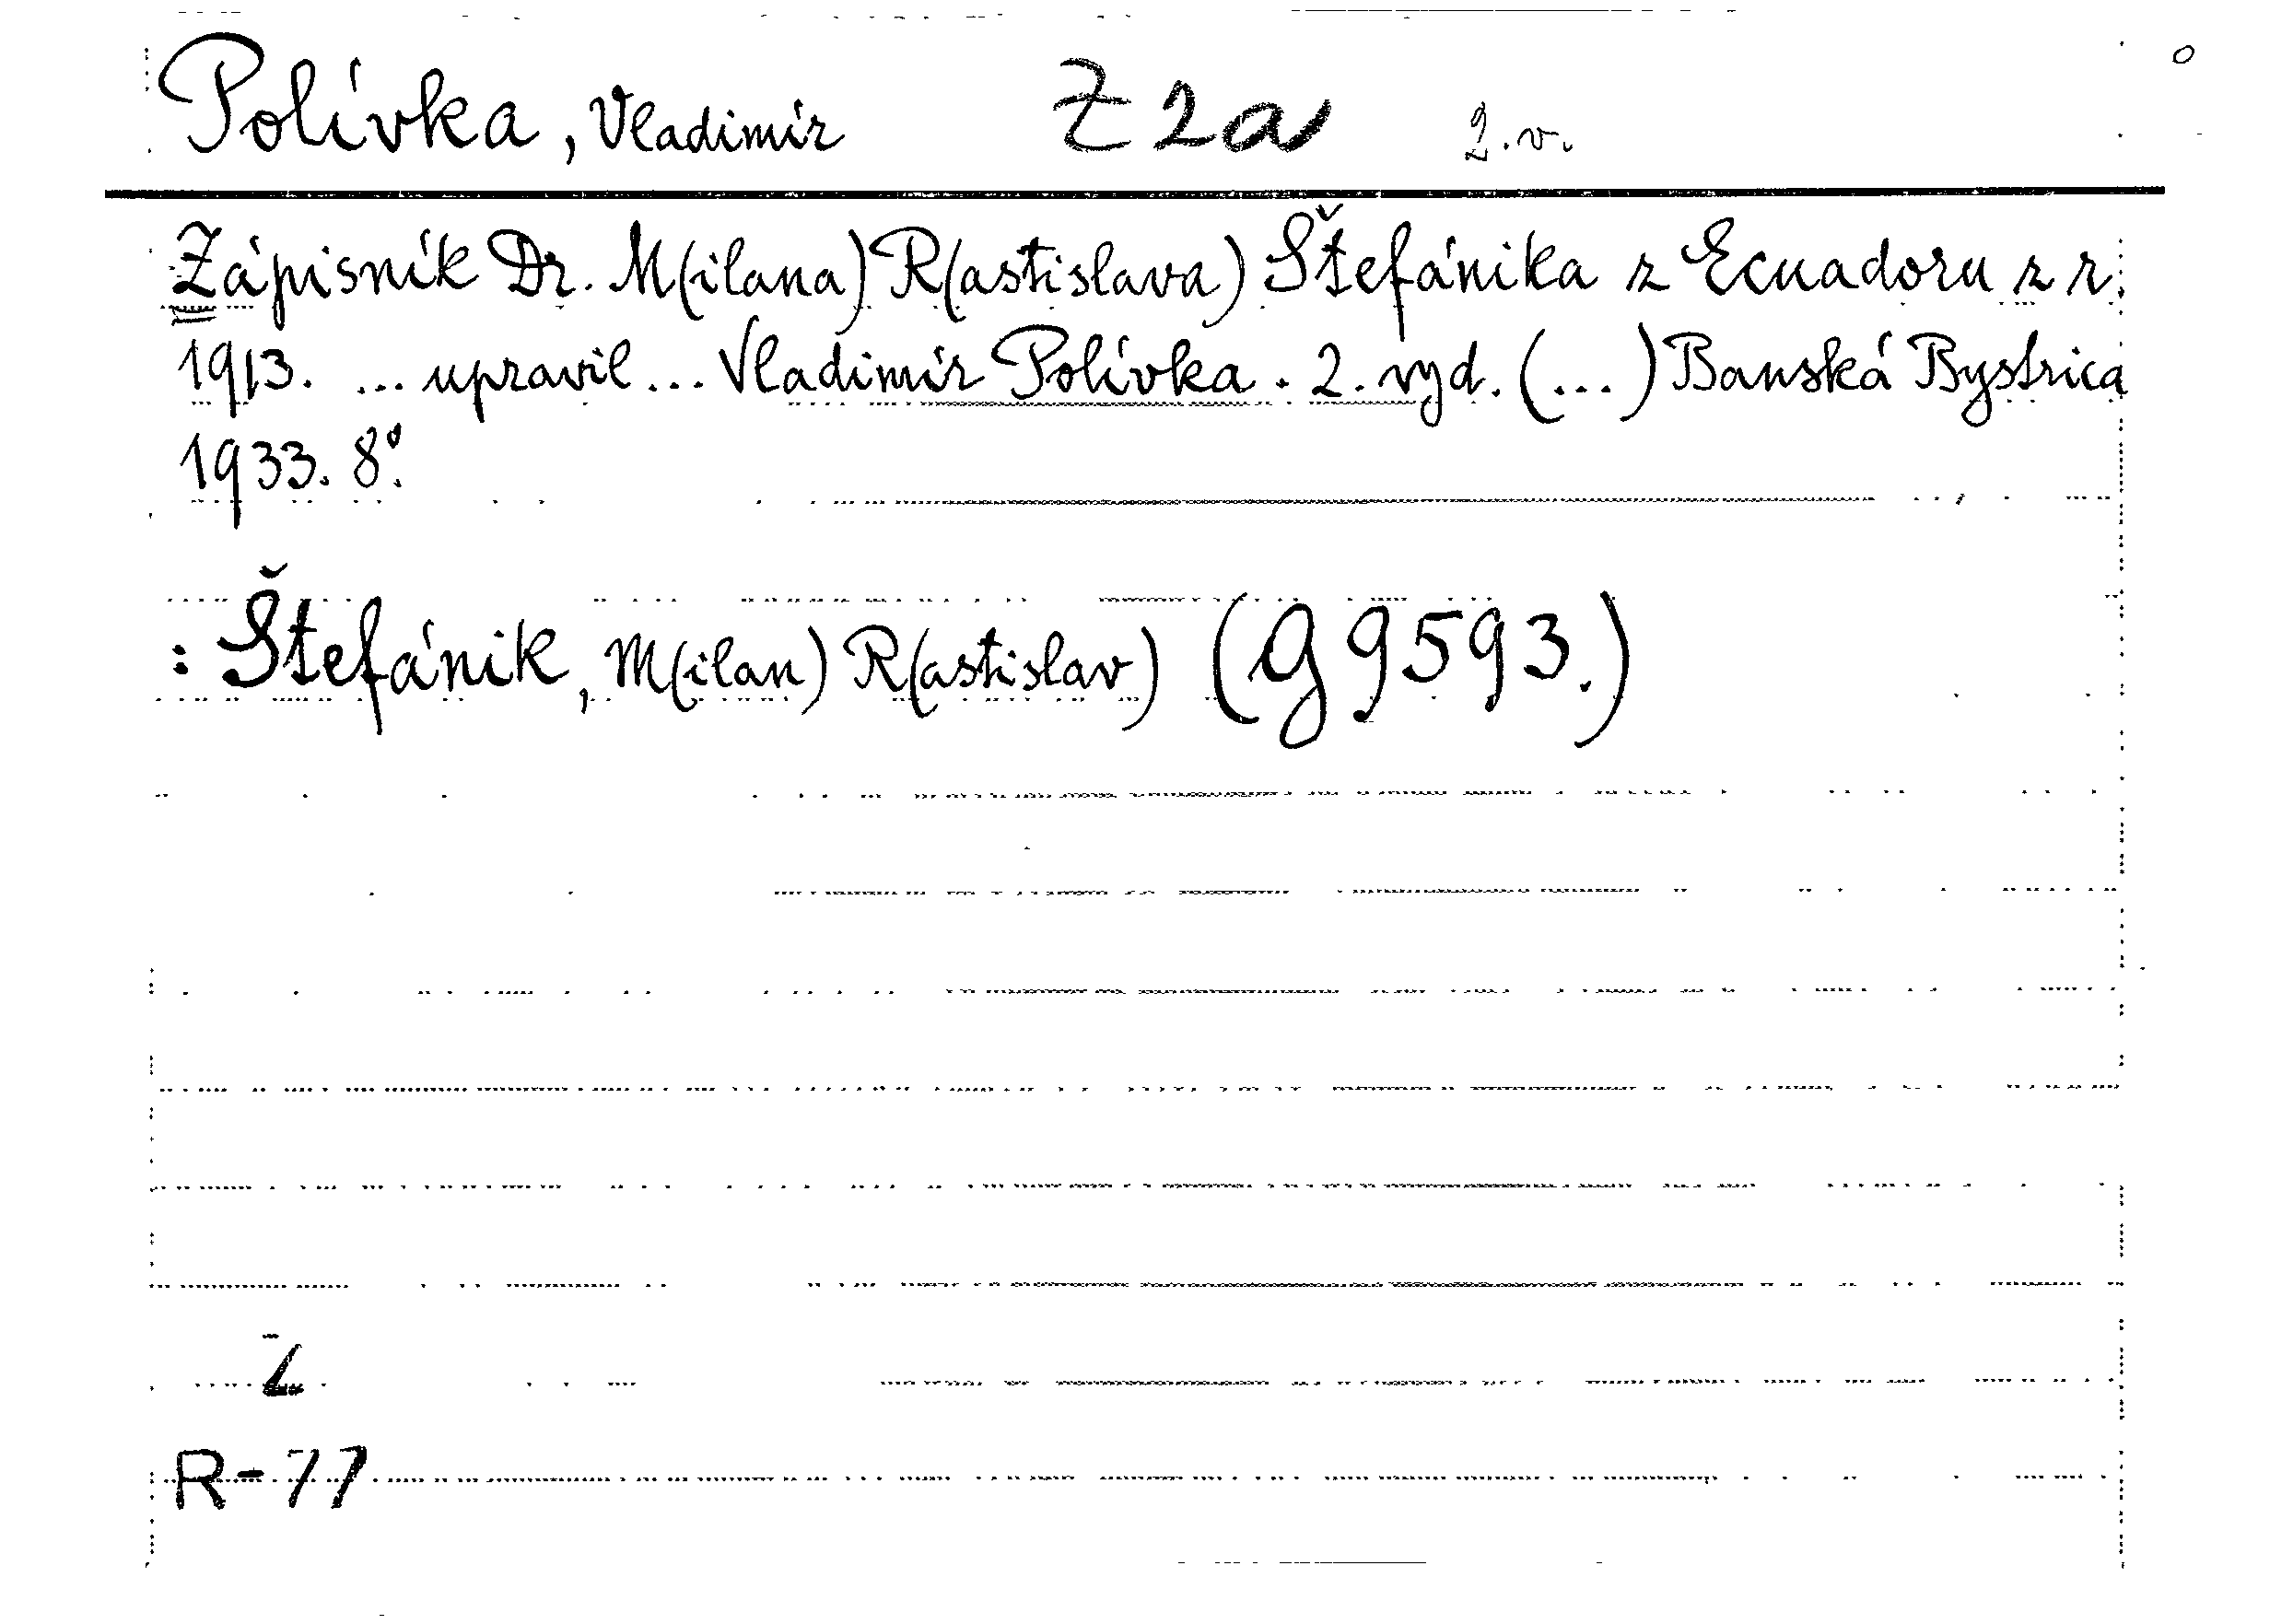 Polívka, Vladimír Z 2a 2.v.
Zápisník Dr. M(ilana) R(astislava) Štefánika z Ecuadoru z r.
1913. ... upravil ... Vladimír Polívka. 2. vyd. (...) Banská Bystrica
1933. 8°.
: Štefánik, M(ilan) R(astislav) (G 9593.)
Z
R-77